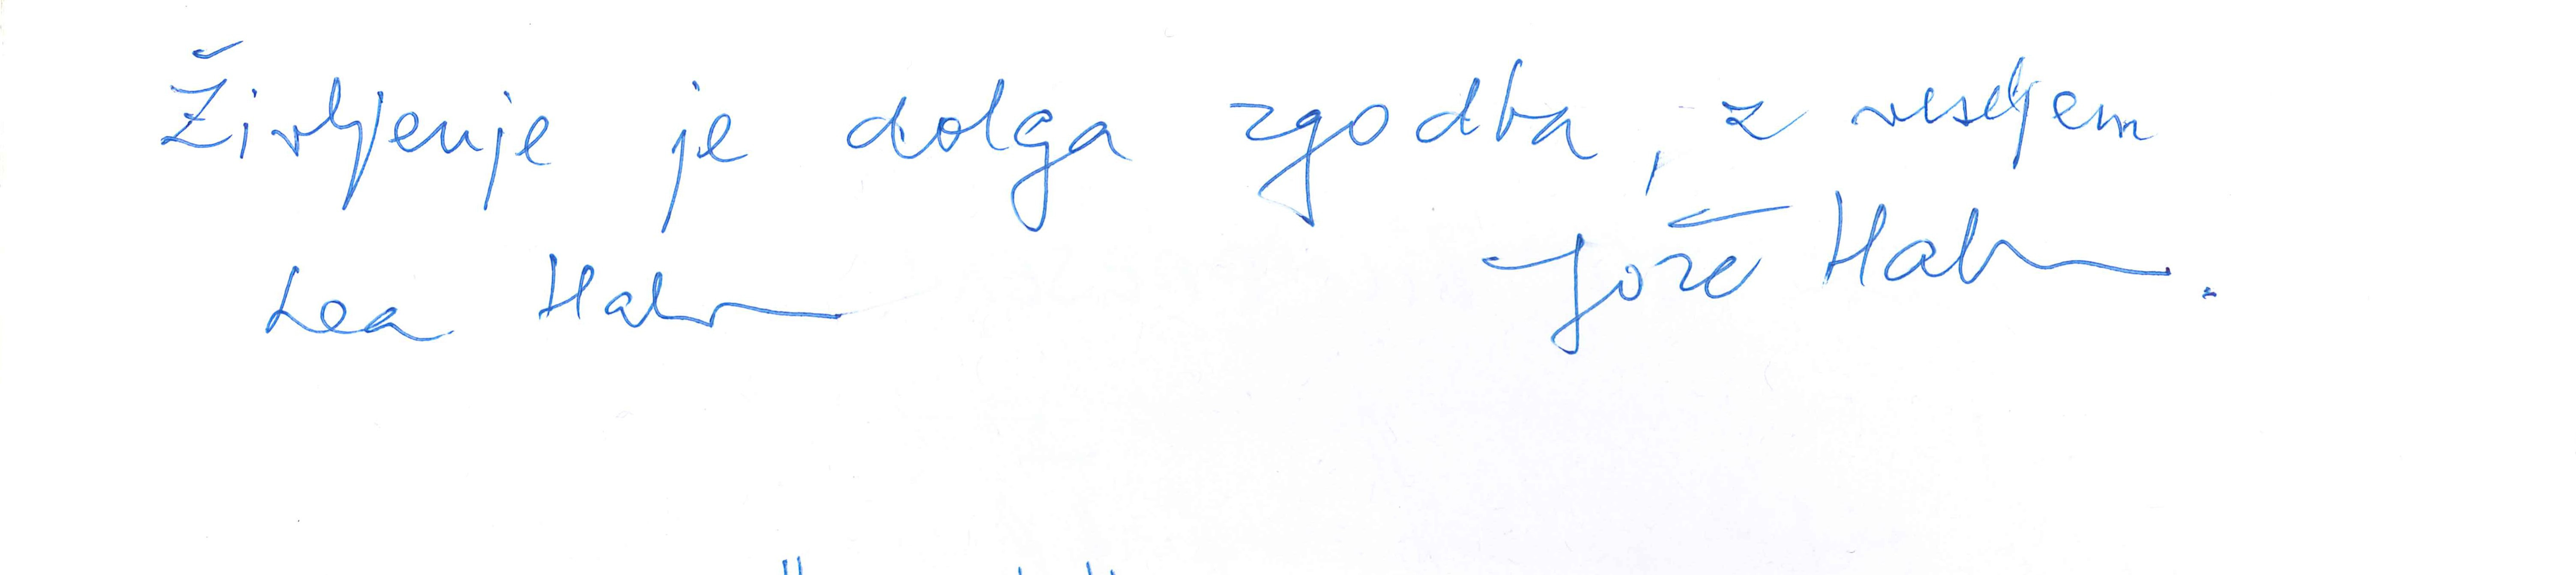 Življenje je dolga zgodba, z veseljem
Lea Hahn Jože Hahn.